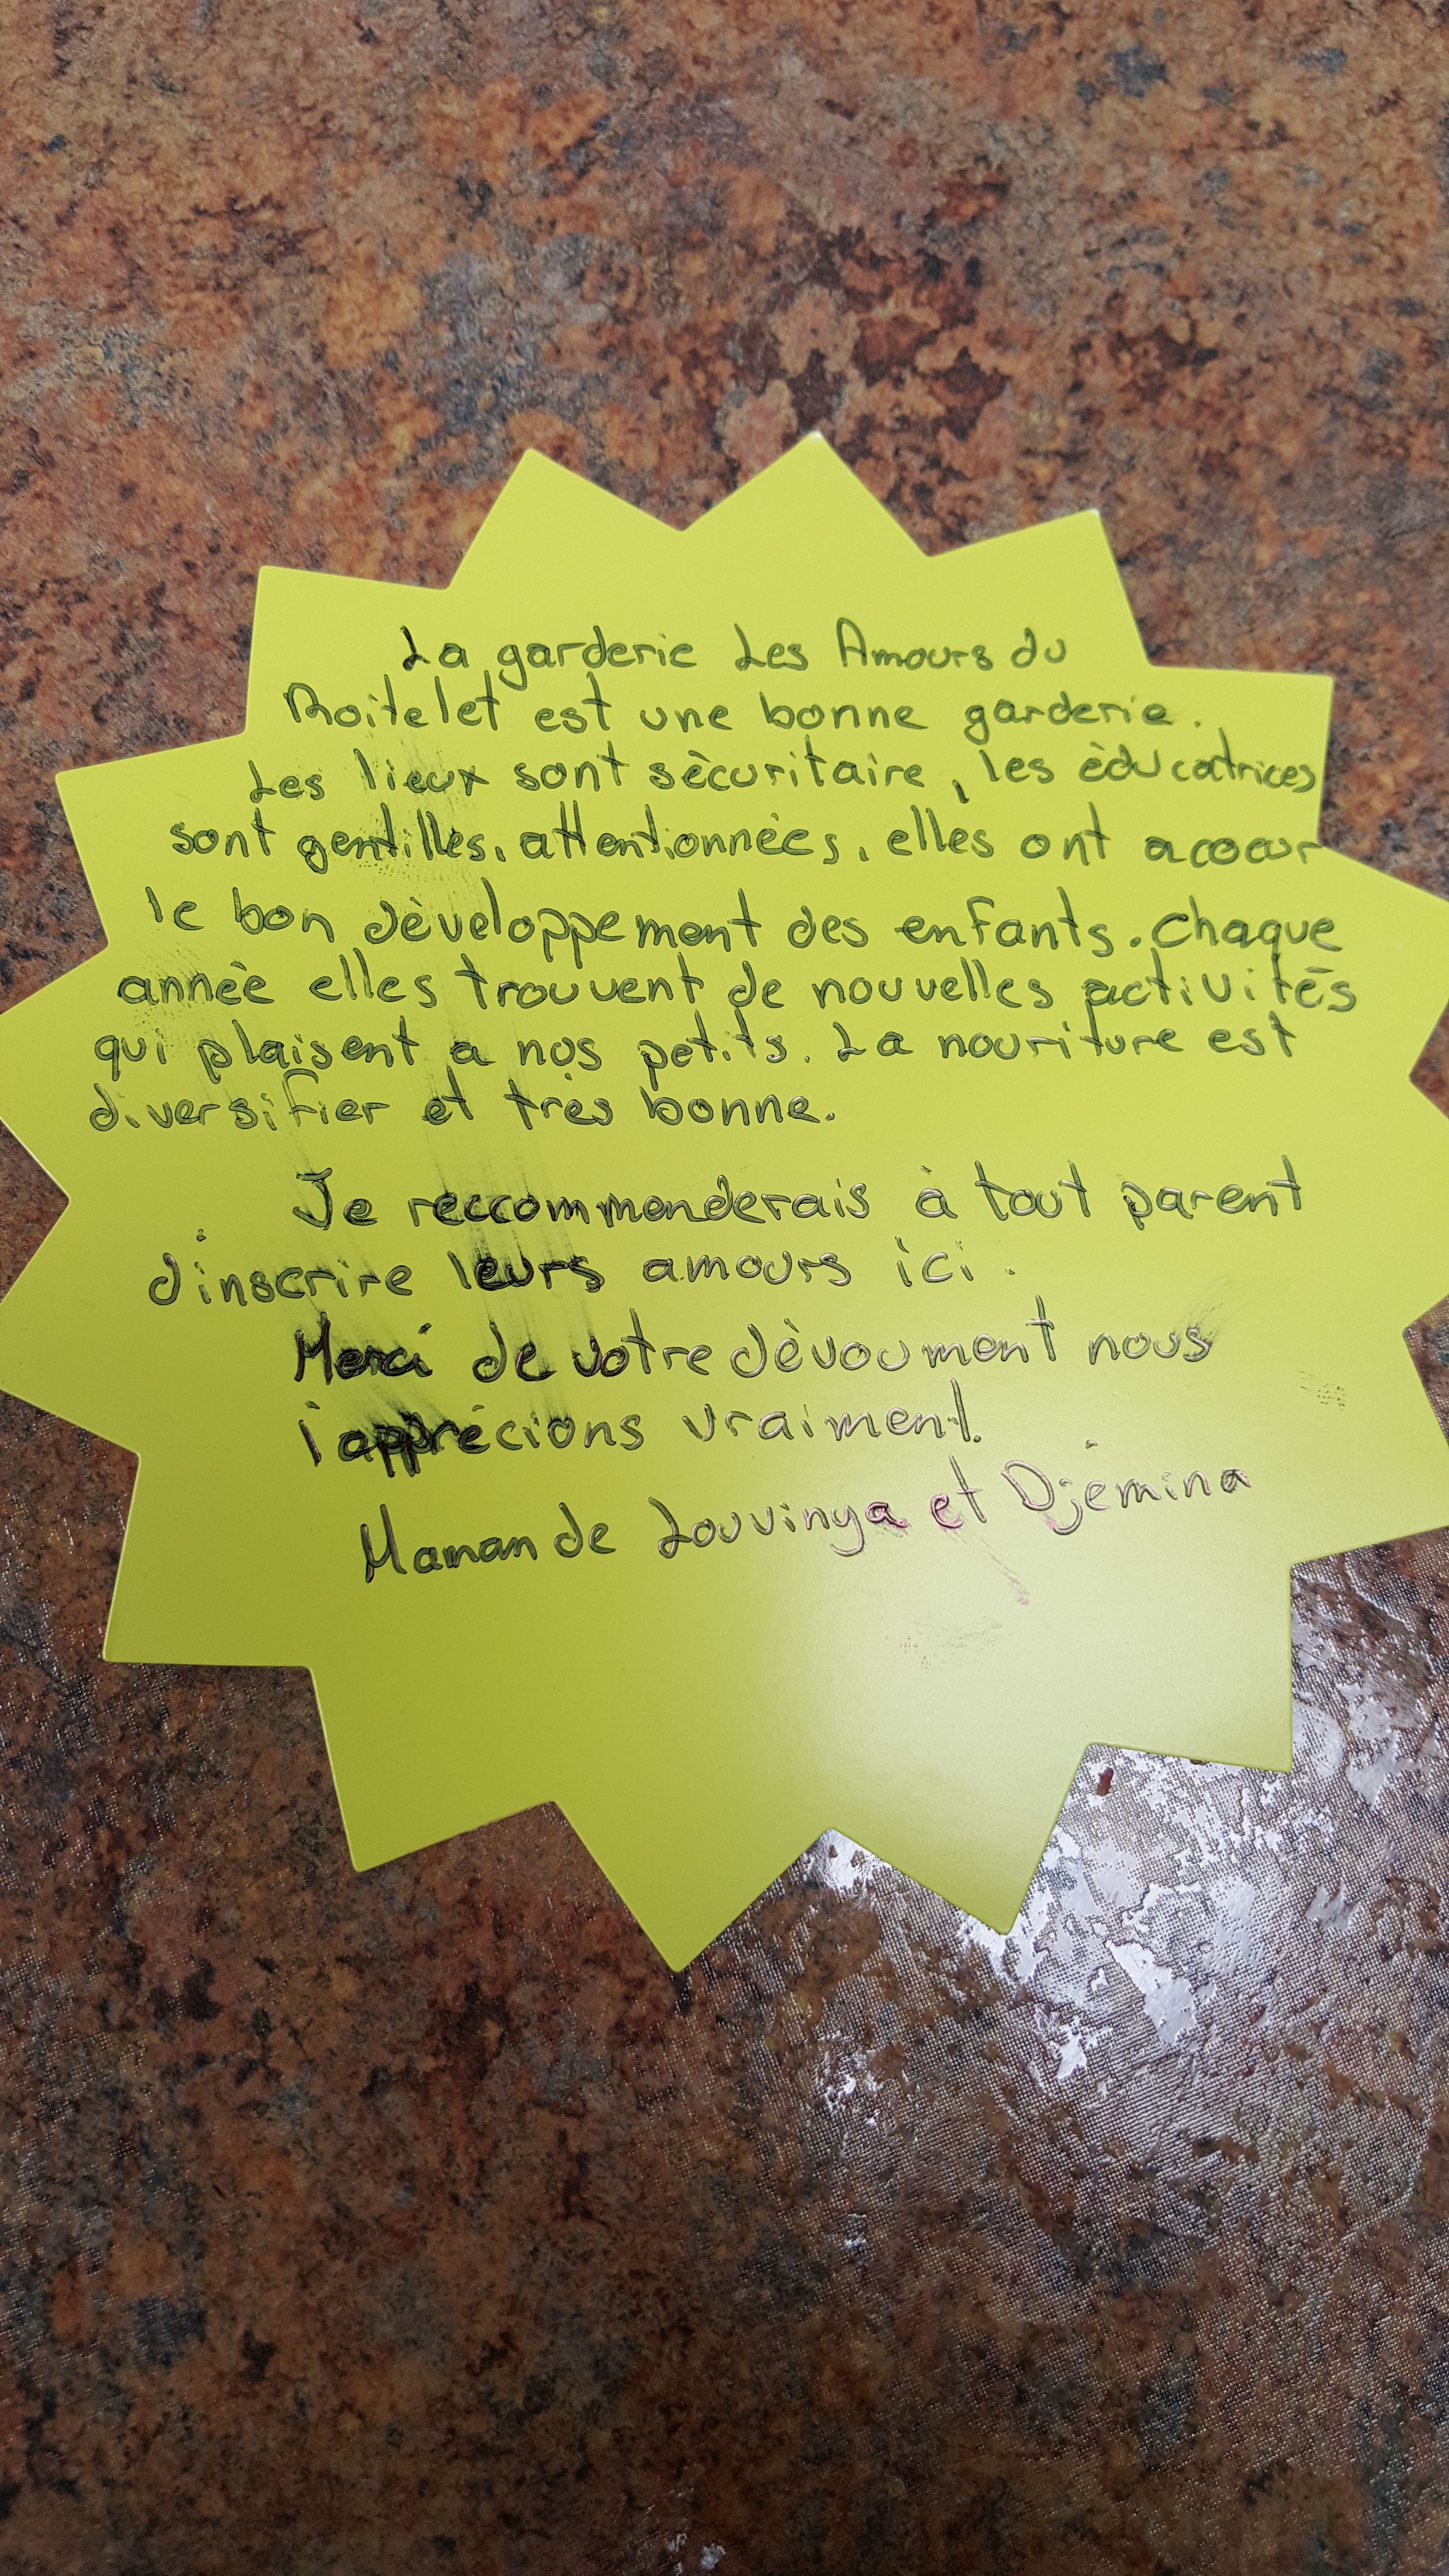 La garderie Les Amours du
Roitelet est une bonne garderie.
Les lieux sont sècuritaire, les èducatrices
sont gentilles, attentionnèes, elles ont a coeur
le bon dèveloppement des enfants. Chaque
annèe elles trouvent de nouvelles activités
qui plaisent a nos petits. La nouriture est
diversifier et très bonne.
Je reccommenderais à tout parent
d'inscrire leurs amours ici.
Merci de votre dèvoument nous
l'apprécions vraiment.
Maman de Louvinya et Djemina